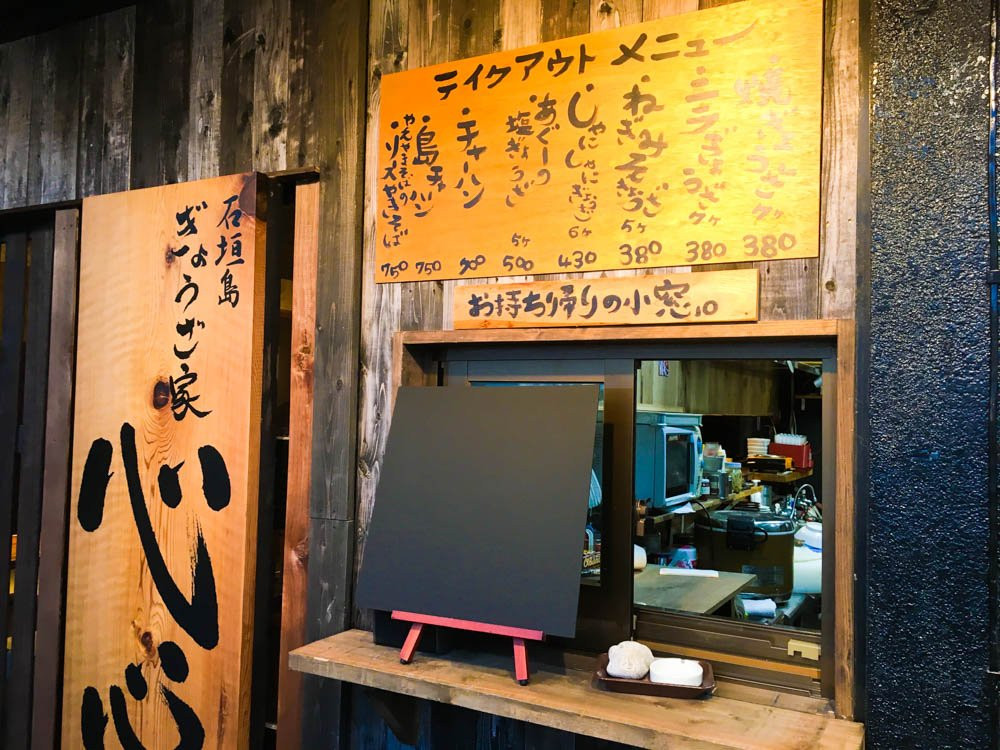 テイクアウト メニュー
・焼ぎょうざ 7ヶ 380
・ミニラぎょうざ 7ヶ 380
・ねぎみそぎょうざ 5ヶ 380
・じゃにしゃに(ぎょうざ) 6ヶ 430
・あぐーの塩ぎょうざ 5ヶ 500
・チャーハン 700
・島チャーハン 750
・やえやまそばのソース焼きそば 750
お持ち帰りの小窓
石垣島
ぎょうざ家
心心